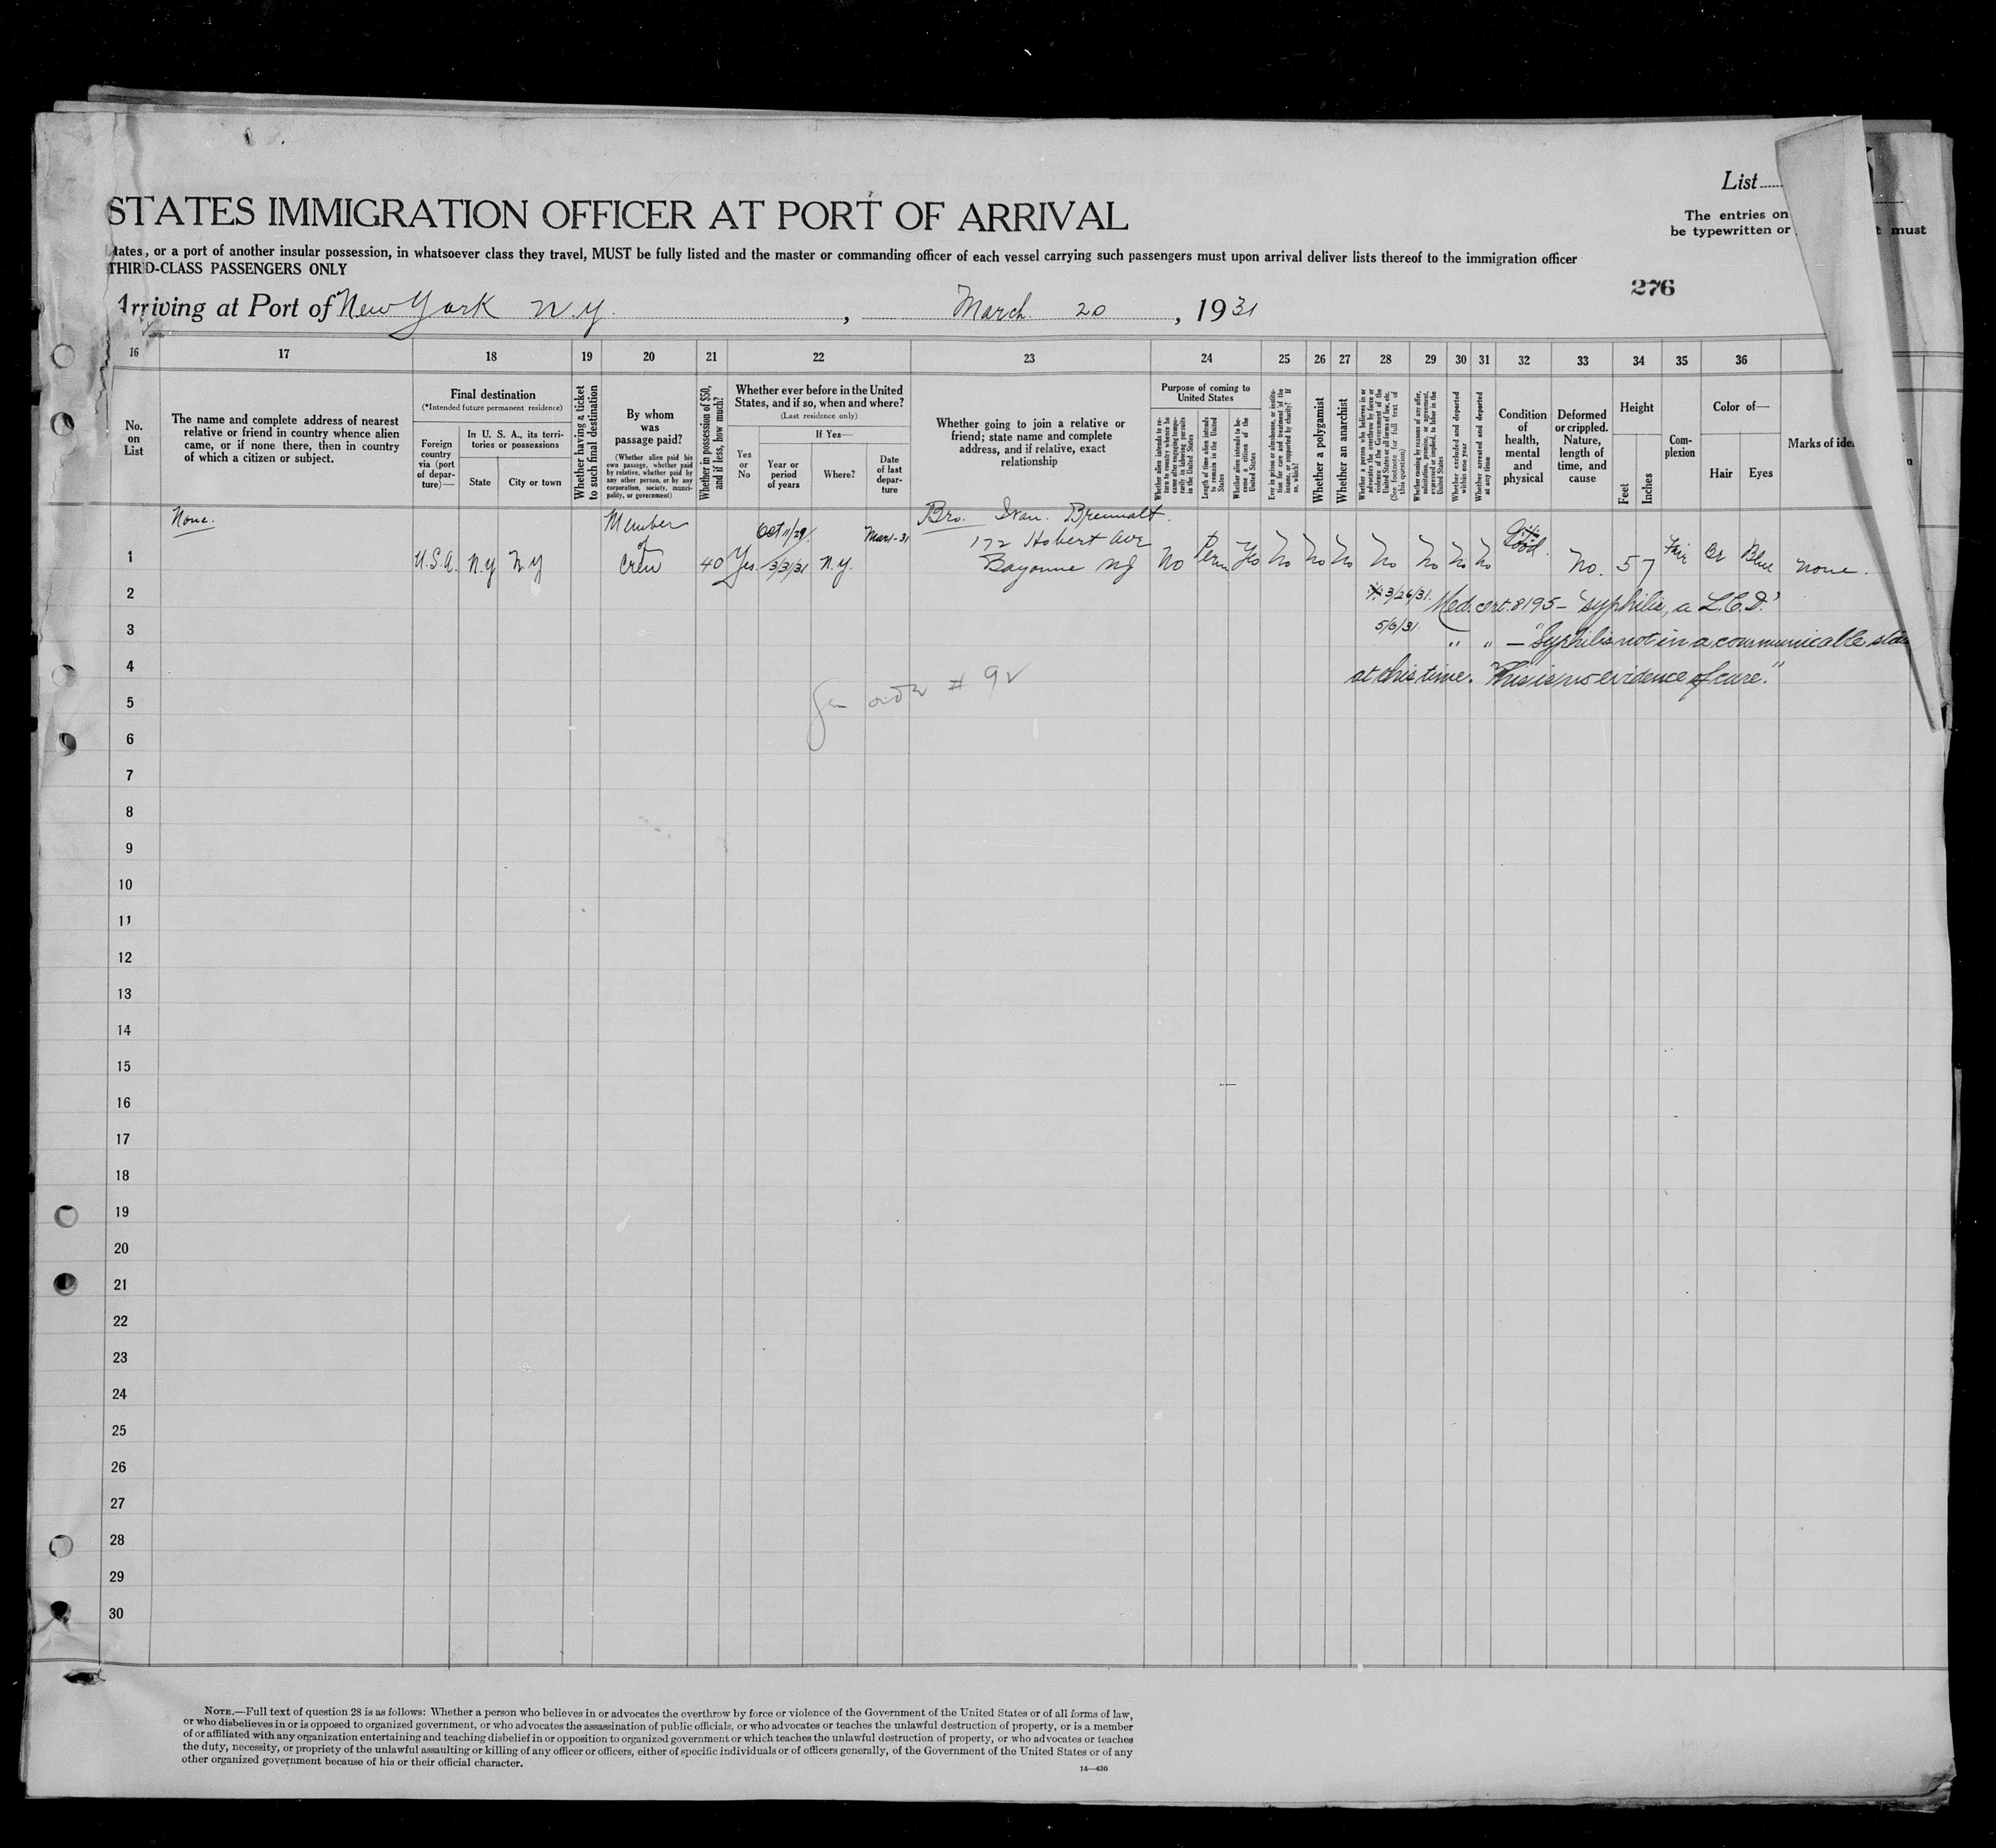 List
STATES IMMIGRATION OFFICER AT PORT OF ARRIVAL
The entries on
be typewritten or
must
tates, or a port of another insular possession, in whatsoever class they travel, MUST be fully listed and the master or commanding officer of each vessel carrying such passengers must upon arrival deliver lists thereof to the immigration officer
THIRD-CLASS PASSENGERS ONLY
276
Arriving at Port of New York N.Y. , March 20 , 1931
16 17 18 19 20 21 22 23 24 25 26 27 28 29 30 31 32 33 34 35 36
No. on List
The name and complete address of nearest
relative or friend in country whence alien
came, or if none there, then in country
of which a citizen or subject.
Final destination
(*Intended future permanent residence)
Foreign country via (port of departure)—
In U. S. A., its territories or possessions
State
City or town
Whether having a ticket to such final destination
By whom was passage paid?
(Whether alien paid his own passage, whether paid by relative, whether paid by any other person, or by any corporation, society, municipality, or government)
Whether in possession of $50, and if less, how much?
Whether ever before in the United
States, and if so, when and where?
(Last residence only)
Yes or No
If Yes—
Year or period of years
Where?
Date of last departure
Whether going to join a relative or
friend; state name and complete
address, and if relative, exact
relationship
Purpose of coming to United States
Whether alien intends to return to country whence he came after engaging temporarily in laboring pursuits in the United States
Length of time alien intends to remain in the United States
Whether alien intends to become a citizen of the United States
Ever in prison or almshouse, or institution for care and treatment of the insane, or supported by charity? If so, which?
Whether a polygamist
Whether an anarchist
Whether a person who believes in or advocates the overthrow by force or violence of the Government of the United States or all forms of law, etc. (See footnote for full text of this question)
Whether coming by reason of any offer, solicitation, promise, or agreement, expressed or implied, to labor in the United States
Whether excluded and deported within one year
Whether arrested and deported at any time
Condition of health, mental and physical
Deformed or crippled. Nature, length of time, and cause
Height
Feet
Inches
Complexion
Color of—
Hair
Eyes
Marks of ide
n
None.
Member
of
Crew
Oct 11/29
Mar 1-31
Bro. Ivan. Brennalt.
172 Hobert Ave
Bayonne NJ
1 U.S.A. N.Y N Y 40 Yes. 3/31/31 N.Y. No Perm Yes No No No No No No No Good. No. 5 7 Fair Br Blue none.
2 3/26/31. Med. cert. 8195 – "Syphilis, a L.C.D."
3 5/6/31. " " – "Syphilis not in a communicable state
4 at this time. This is no evidence of cure."
# 92
5
6
7
8
9
10
11
12
13
14
15
16
17
18
19
20
21
22
23
24
25
26
27
28
29
30
NOTE.—Full text of question 28 is as follows: Whether a person who believes in or advocates the overthrow by force or violence of the Government of the United States or of all forms of law,
or who disbelieves in or is opposed to organized government, or who advocates the assassination of public officials, or who advocates or teaches the unlawful destruction of property, or is a member
of or affiliated with any organization entertaining and teaching disbelief in or opposition to organized government or which teaches the unlawful destruction of property, or who advocates or teaches
the duty, necessity, or propriety of the unlawful assaulting or killing of any officer or officers, either of specific individuals or of officers generally, of the Government of the United States or of any
other organized government because of his or their official character.
14—430